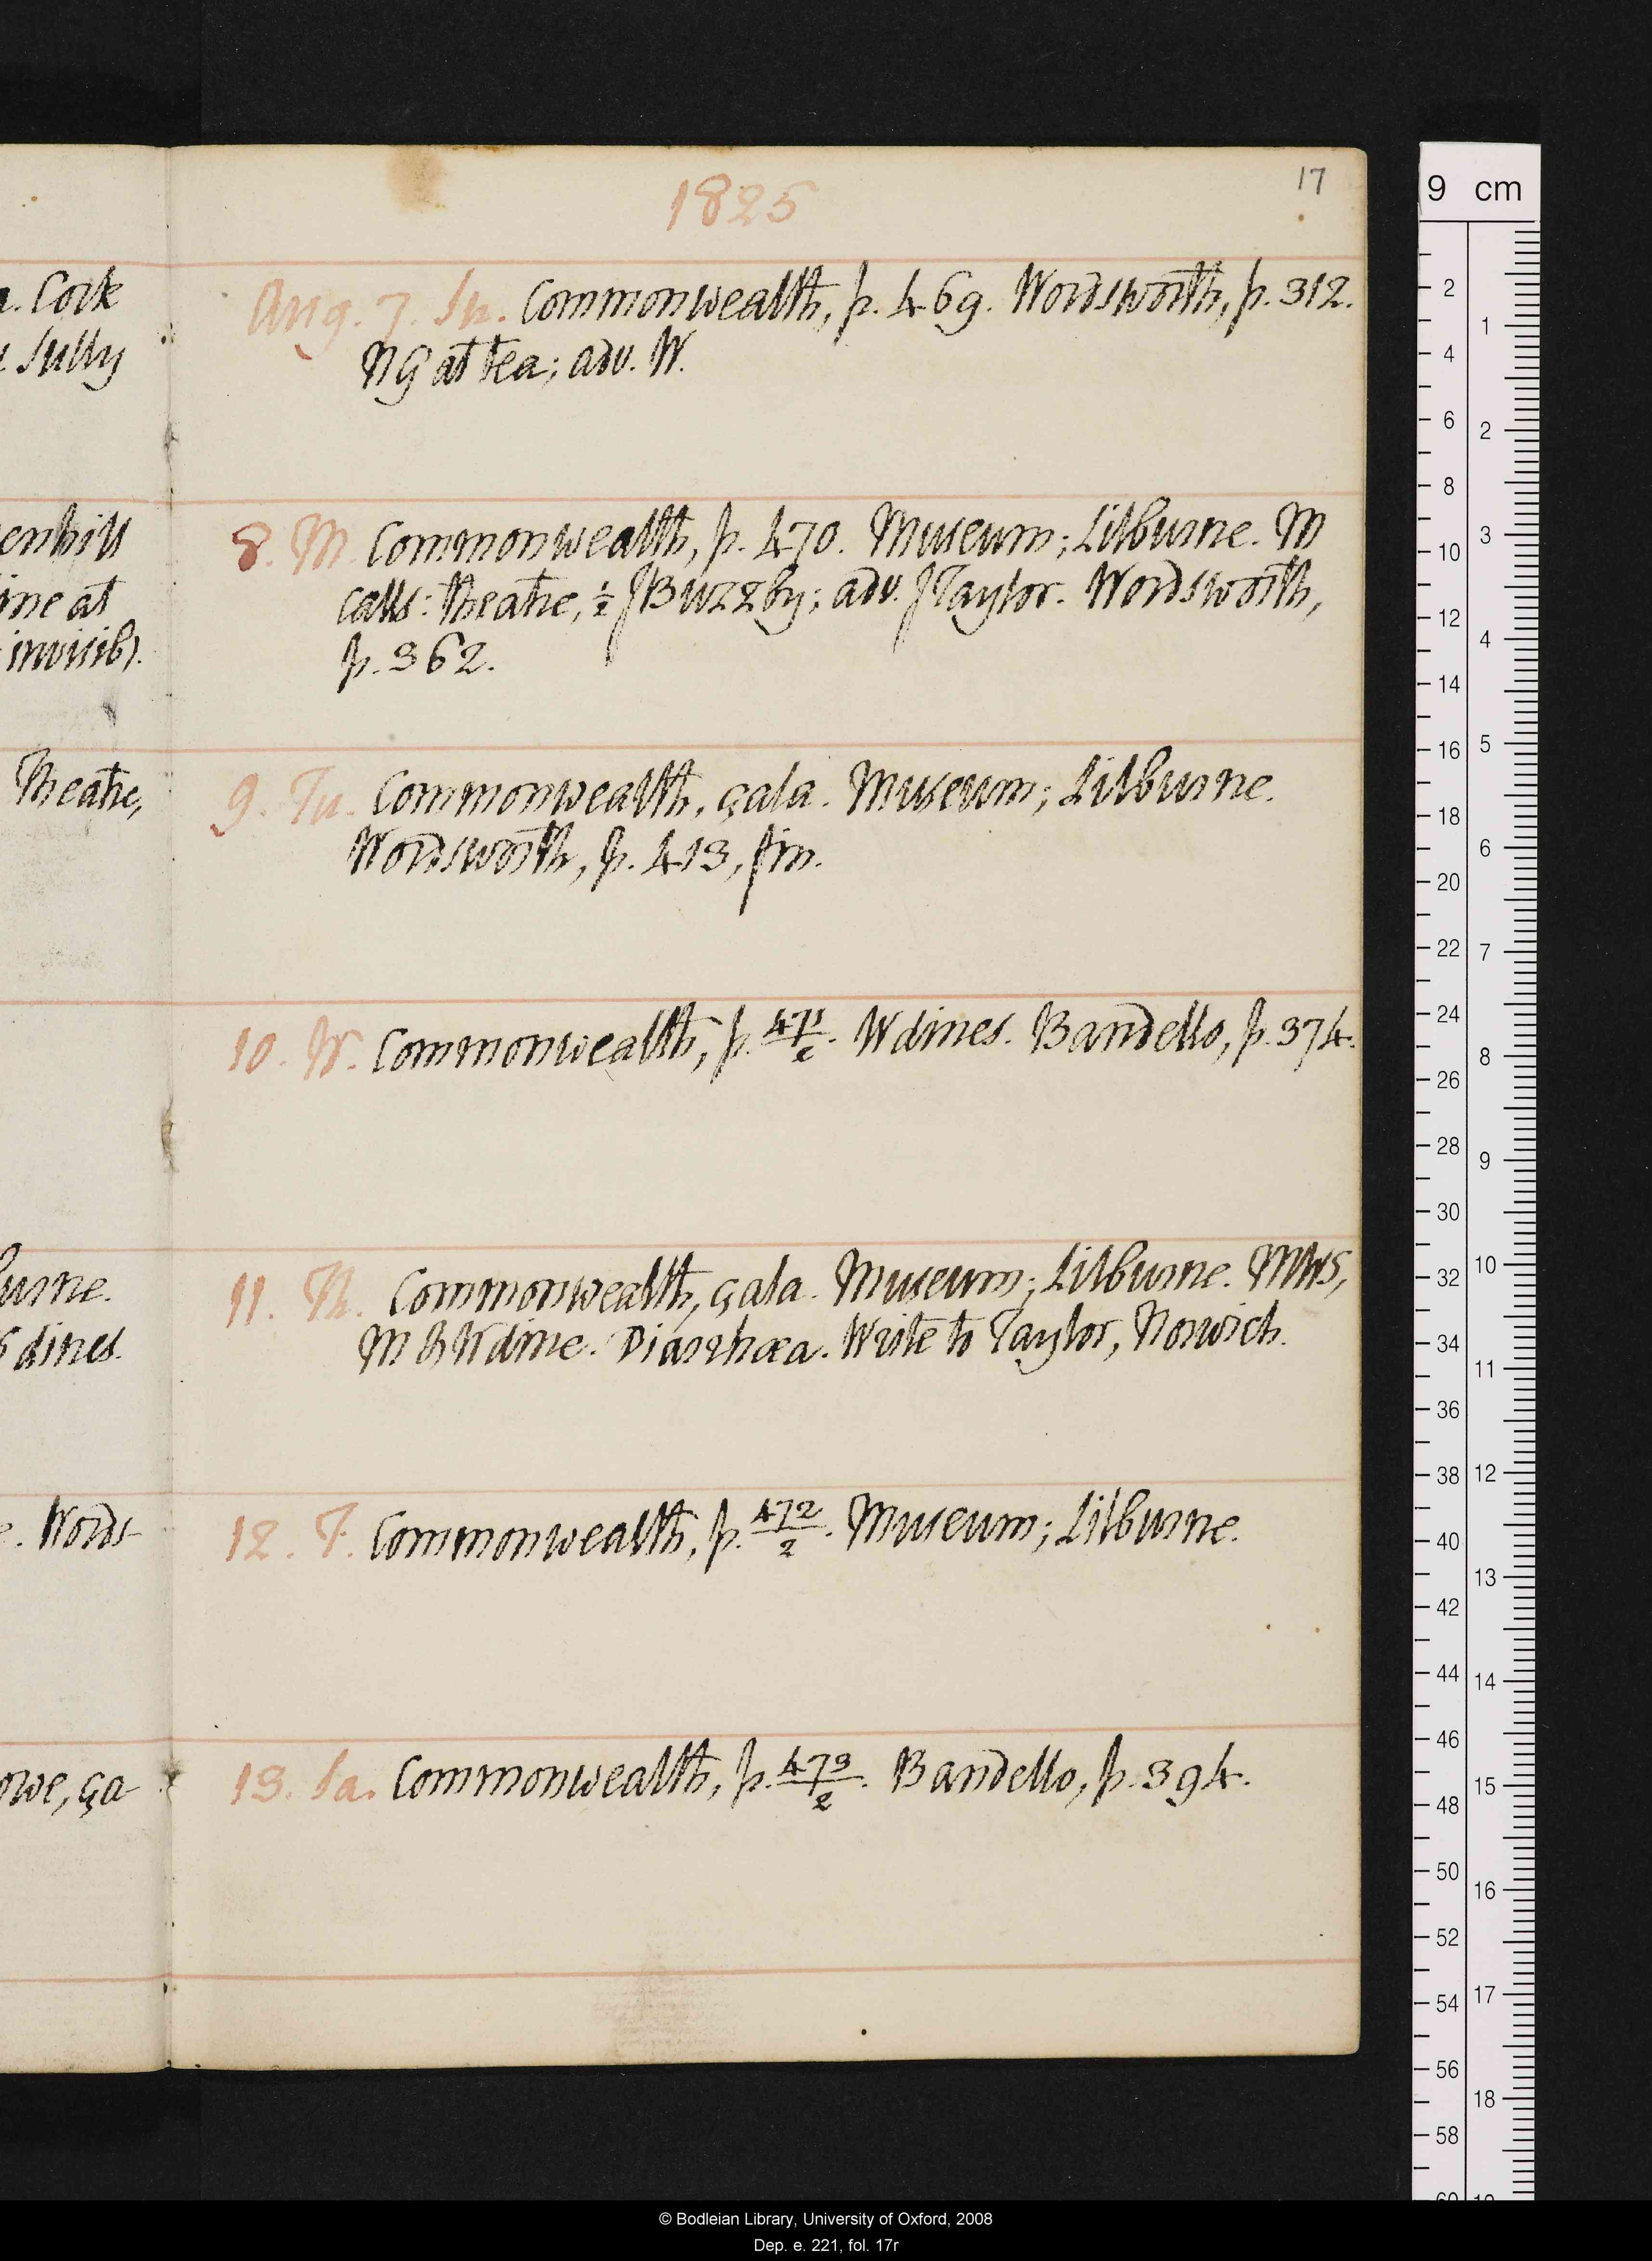 1825
17
n. Cork
Sully
enhill
ine at
invisib).
Theatre,
urne.
dines.
. Words-
owe, ça
Aug. 7. Su. Commonwealth, p. 469. Wordsworth, p. 312.
N G at tea; adv. W.
8. M. Commonwealth, p. 470. Museum; Lilburne. M
calls: theatre, ½ JBuzzby; adv. JTaylor. Wordsworth,
p. 362.
9. Tu. Commonwealth, çala. Museum; Lilburne.
Wordsworth, p. 413, fin.
10. W. Commonwealth, p. 471/2. W dines. Bandello, p. 374.
11. Th. Commonwealth, çala. Museum; Lilburne. MWS,
M & W dine. Diarrhœa. Write to Taylor, Norwich.
12. F. Commonwealth, p. 472/2. Museum; Lilburne.
13. Sa. Commonwealth, p. 473/2. Bandello, p. 394.
9 cm
2
4
6
8
10
12
14
16
18
20
22
24
26
28
30
32
34
36
38
40
42
44
46
48
50
52
54
56
58
1
2
3
4
5
6
7
8
9
10
11
12
13
14
15
16
17
18
© Bodleian Library, University of Oxford, 2008
Dep. e. 221, fol. 17r